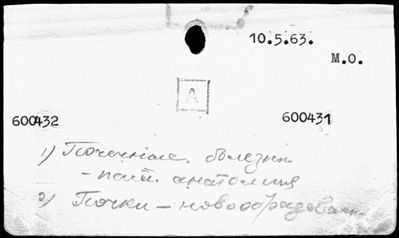 10.5.63.
М.О.
А
600432
600431
1) Почечные болезни
- пат. анатомия
2) Почки - новообразования